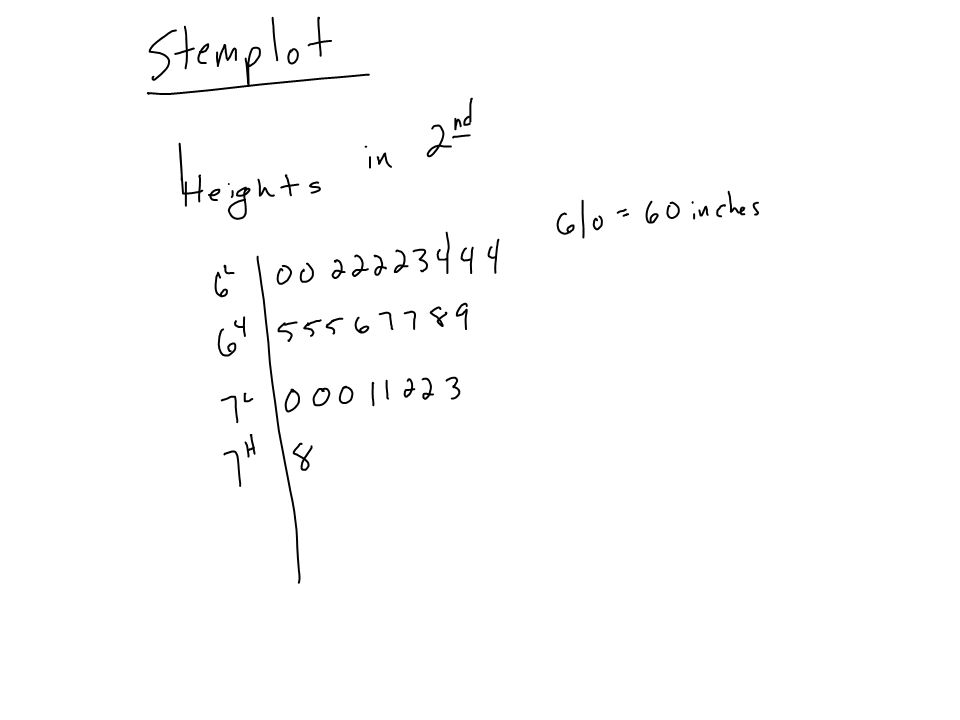 Stemplot
Heights in 2nd
6|0 = 60 inches
6L | 00 22223444
6H | 55567789
7L | 00011223
7H | 8